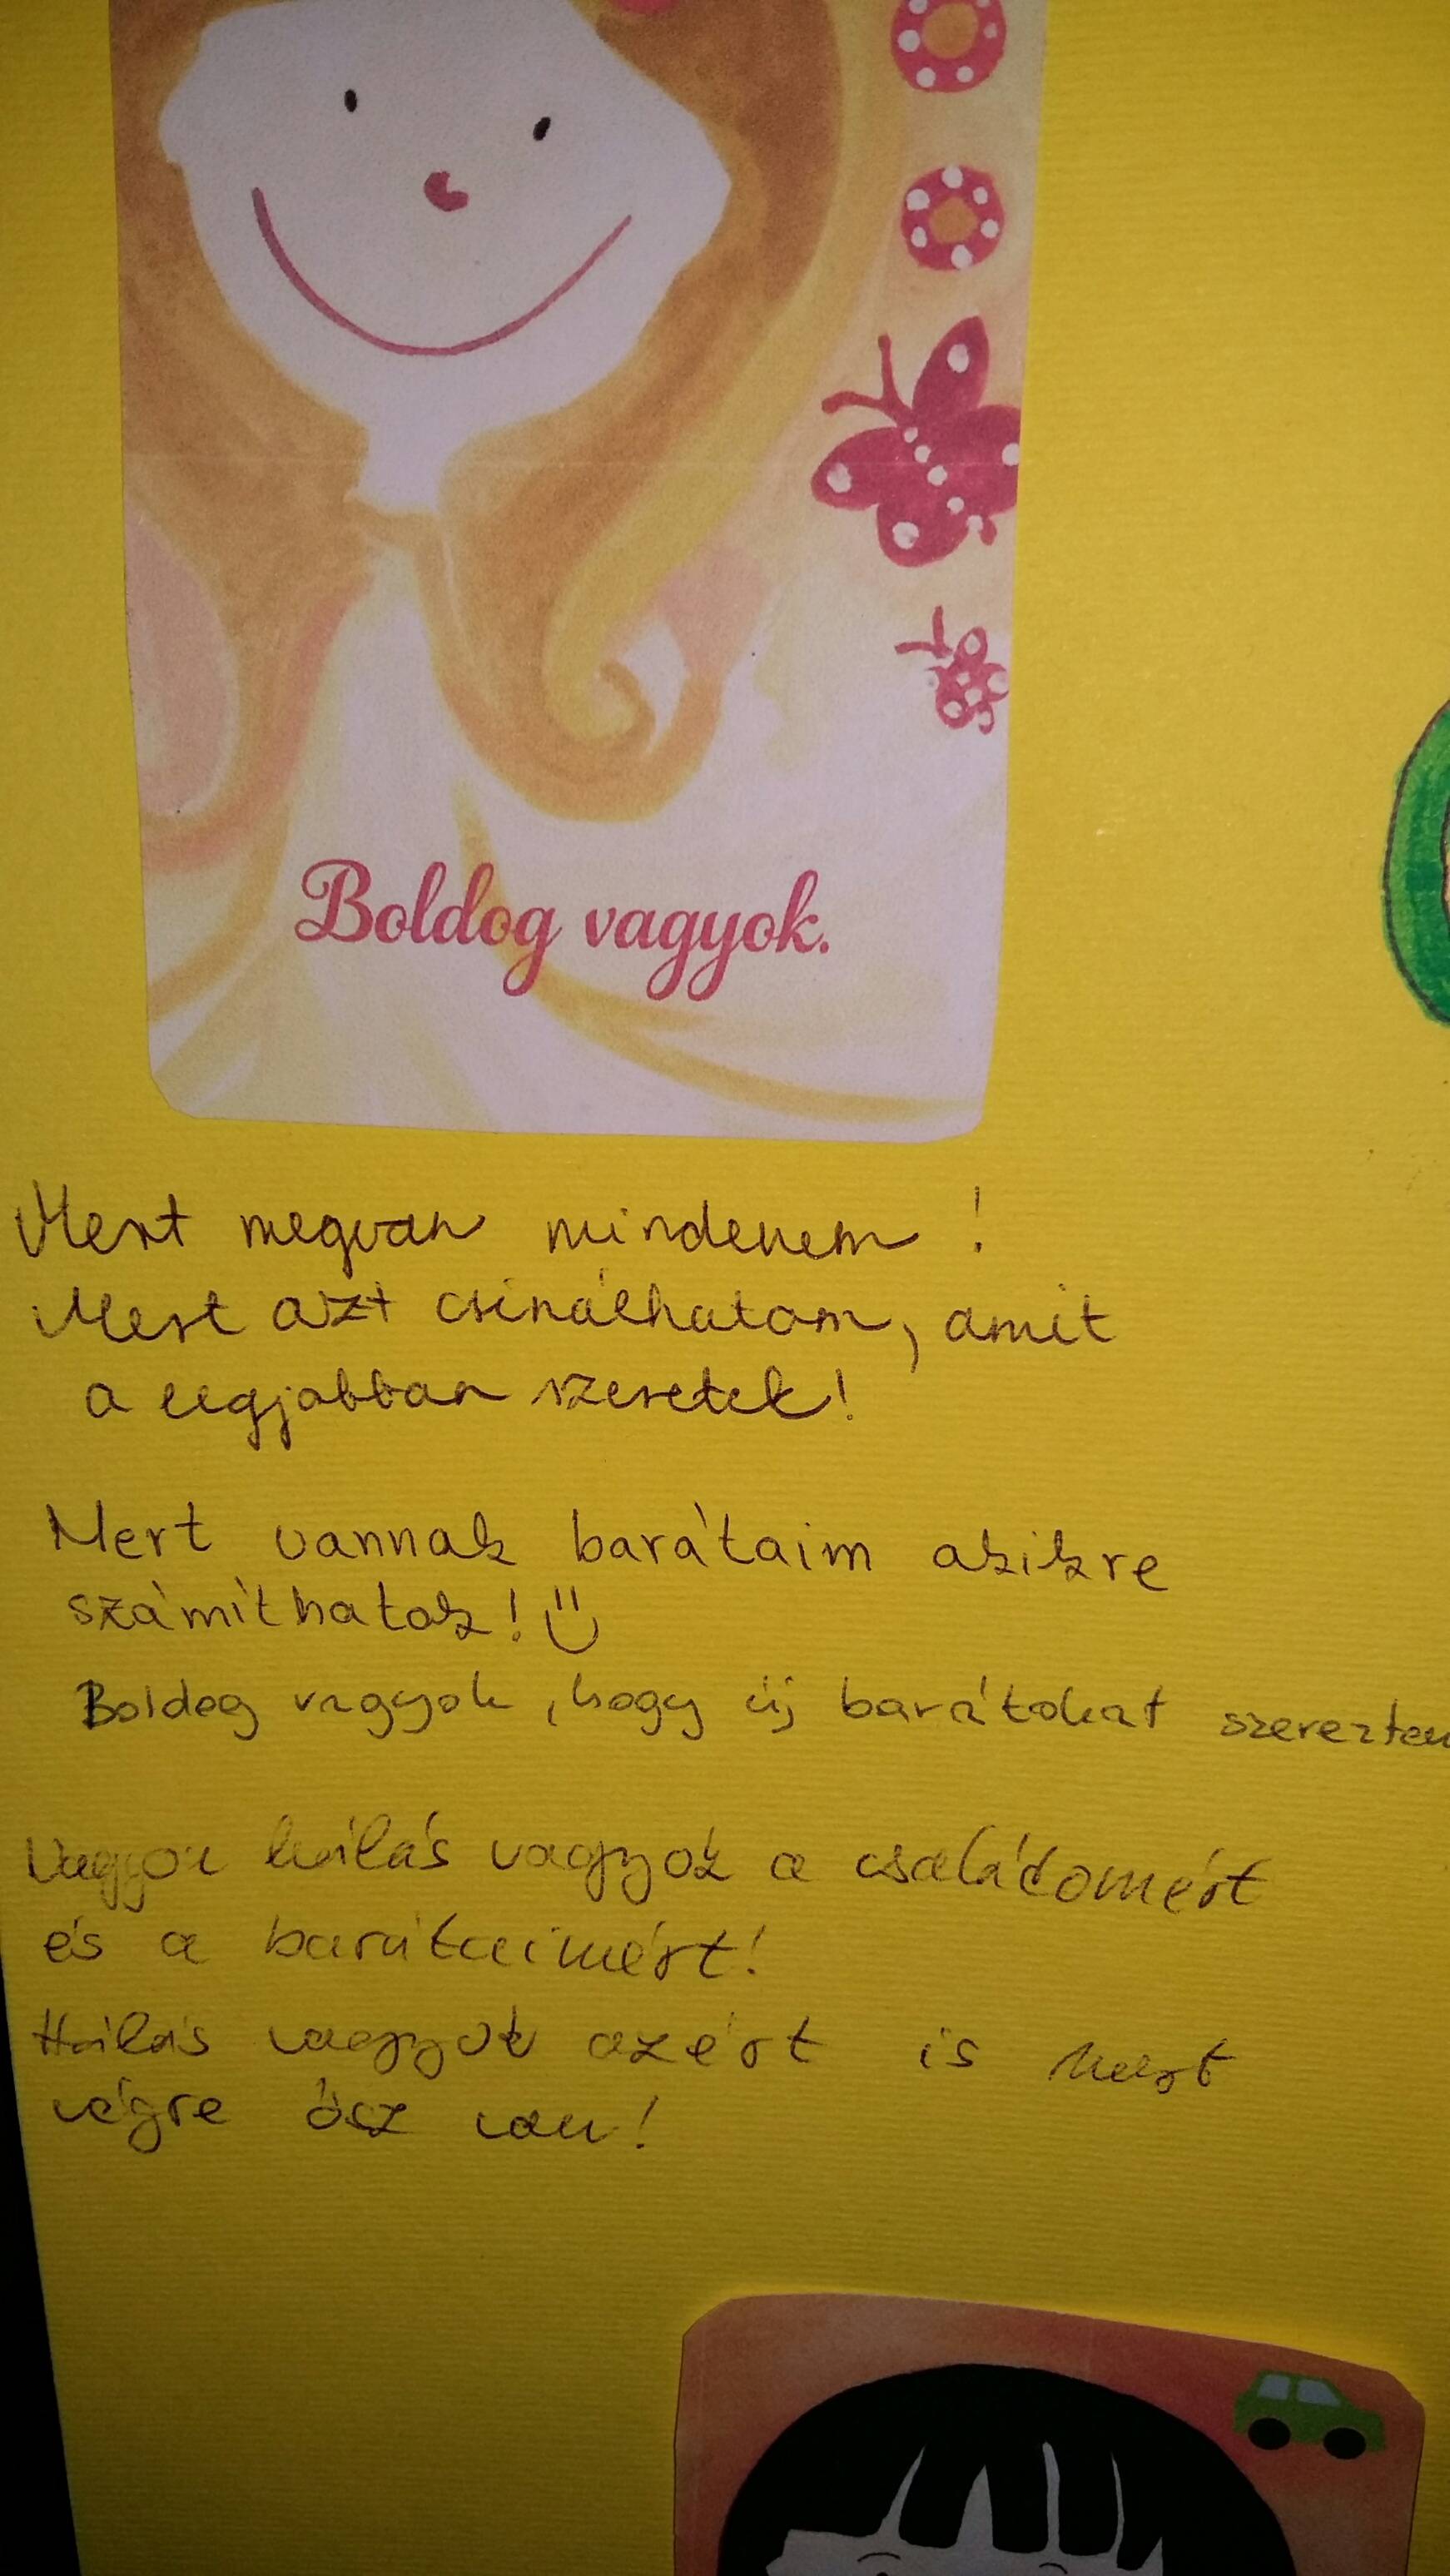 Boldog vagyok.
Mert megvan mindenem !
Mert azt csinálhatom, amit
a legjobban szeretek!
Mert vannak barátaim akikre
számíthatok! ü
Boldog vagyok, hogy új barátokat szereztem
Nagyon hálás vagyok a családomért
és a barátaimért!
Hálás vagyok azért is mert
végre ősz van!